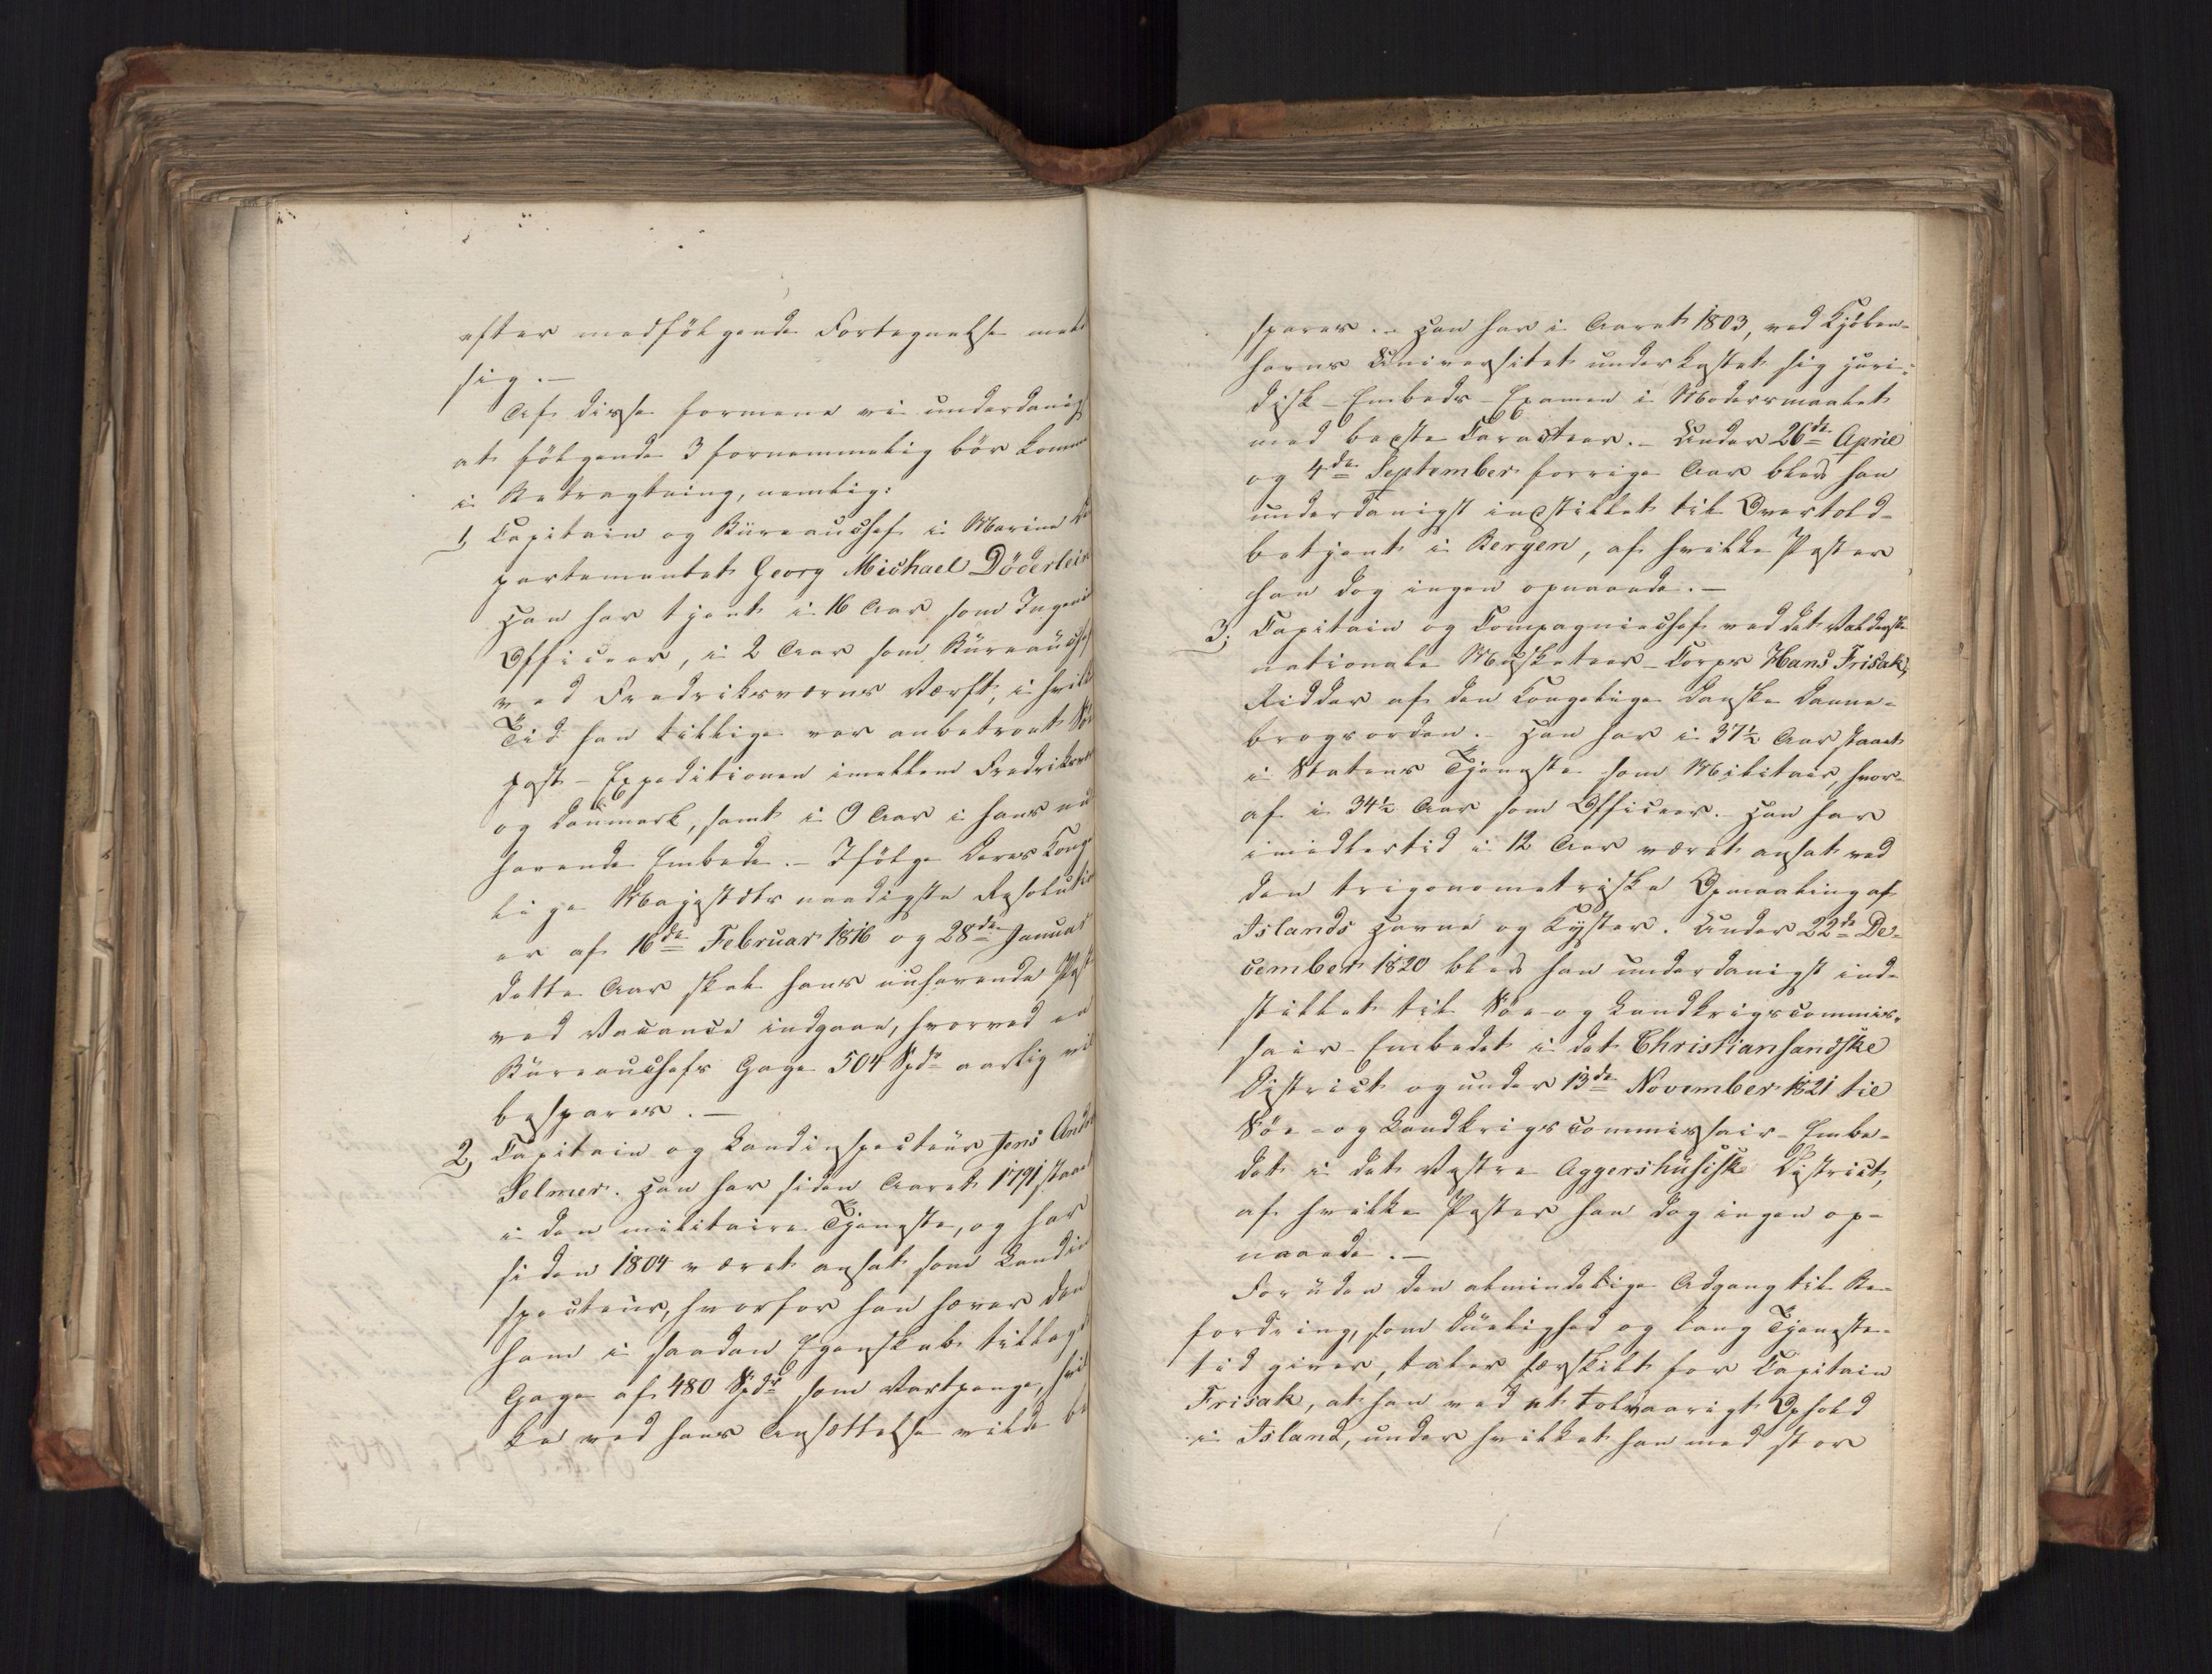 efter medfölgende Fortegnelse meldt
sig. –
Af disse formene vi underdanigst
at fölgende 3 fornemmelig bör komme
i Betragtning, nemlig:
1, Capitain og Büreauchef i Marine De
partementet Georg Michael Döderlein
Han har tjent i 16 Aar som Ingeni
Officeer, i 2 Aar som Büreauchef
ved Fredriksværns Værft, i hvilk
Tid han tillige var anbetroet Söe
post-Expeditionen imellem Fredriksværn
og Danmark, samt i 9 Aar i hans nu
havende Embede. – Ifölge Deres Konge
lige Majestæts naadigste Resolution
er af 16de Februar 1816 og 28de Januar
dette Aar skal hans iihavende Post
ved Vacance indgaae, hvorved en
Büreauchefs Gage 504 Spd. aarlig vil
bespares. –
2, Capitain og Landinspecteur Jens Andr
Selmer. Han har siden Aaret 1791 staaet
i den militaire Tjeneste, og har
siden 1804 været ansat som Landin
specteur, hvorfor han hæver den
ham i saadan Egenskab tillagt
Gage af 480 Spdr. som Vartpenge, hvil
ke ved hans Ansættelse vilde be
spares. – Han har i Aaret 1803, ved Kjöben-
havns Universitet underkastet sig juri-
disk-Embeds-Examen i Modersmaalet
med bedste Caracteer. – Under 26de April
og 4de September forrige Aar blev han
underdanigst indstillet til Overtold-
betjent i Bergen, af hvilke Poster
han dog ingen opnaaede. –
3, Capitain og Compagniechef ved det Valderske
nationale Musketeer-Corps Hans Frisak,
Ridder af den Kongelige Danske Danne-
brogsorden. – Han har i 37½ Aar staaet
i Statens Tjeneste som Militair, hvor-
af i 34½ Aar som Officeer. Han har
imidlertid i 12 Aar været ansat ved
den trigonometriske Opmaaling af
Islands Havne og Kyster. Under 22de De-
cember 1820 blev han underdanigst ind-
stillet til Söe- og Landkrigscommis-
sair-Embedet i det Christiansandske
District og under 13de November 1821 til
Söe- og Landkrigscommissair-Embe-
det i det Vestre Aggershusiske District,
af hvilke Poster han dog ingen op-
naaede. –
Foruden den almindelige Adgang til Be-
fordring, som Duelighed og lang Tjeneste-
tid giver, taler særskilt for Capitain
Frisak, at han ved et tolvaarigt Ophold
i Island, under hvilket han med stor